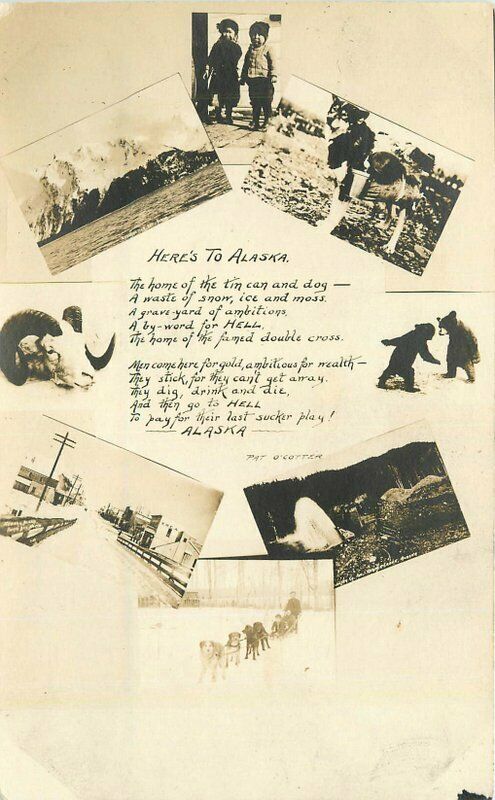 HERE'S TO ALASKA.
The home of the tin can and dog —
A waste of snow, ice and moss.
A grave-yard of ambitions.
A by-word for HELL,
The home of the famed double cross.
Men come here for gold, ambitious for wealth —
They stick, for they cant get away.
They dig, drink and die,
And then go to HELL
To pay for their last sucker play!
— ALASKA —
PAT O'COTTER